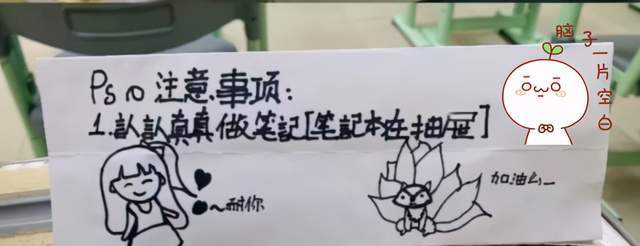 Ps の 注意事项:
1.認認真真做笔記[笔記本在抽屉]
~耐你
加油么~
脑子一片空白